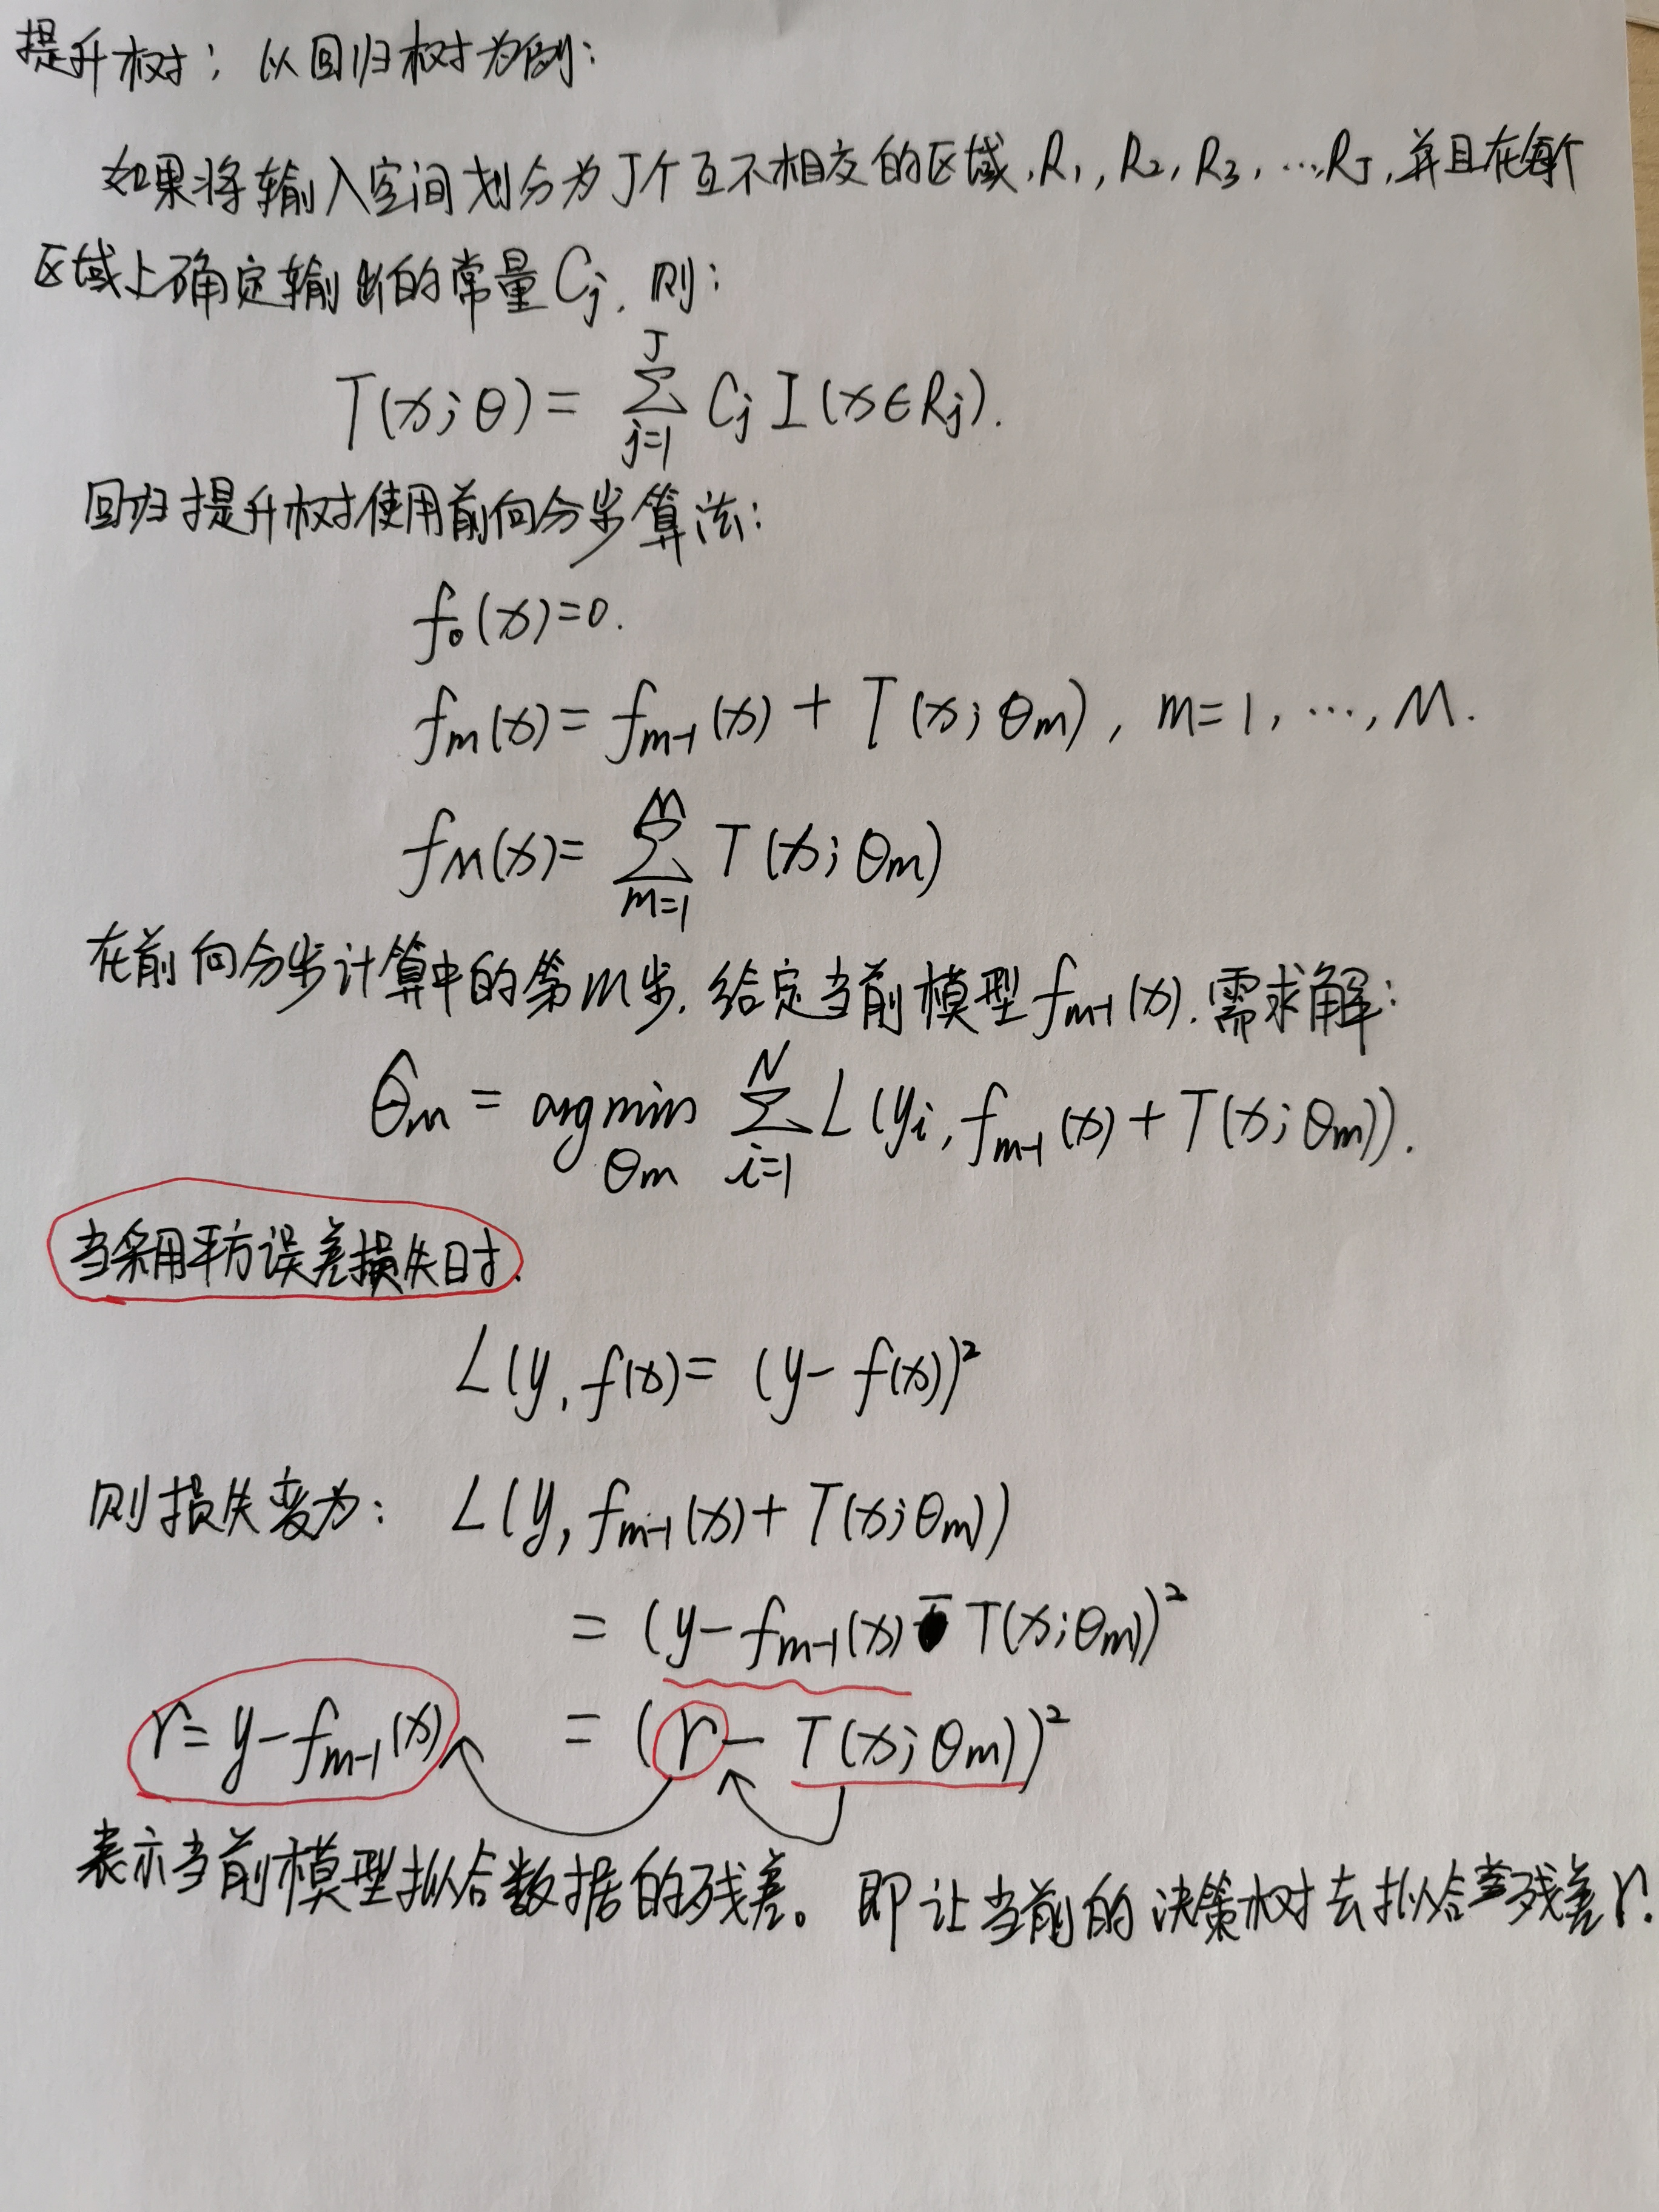 提升树；以回归树为例：
如果将输入空间划分为J个互不相交的区域，R₁, R₂, R₃, …, R_J，并且在每个
区域上确定输出的常量C_j，则：
T(x; θ) = Σ_{j=1}^{J} C_j I(x∈R_j).
回归提升树使用前向分步算法：
f₀(x)=0.
f_m(x) = f_{m-1}(x) + T(x; θ_m), m=1, …, M.
f_M(x) = Σ_{m=1}^{M} T(x; θ_m)
在前向分步计算中的第m步，给定当前模型f_{m-1}(x)，需求解：
θ̂_m = argmin_{θ_m} Σ_{i=1}^{N} L(y_i, f_{m-1}(x) + T(x; θ_m)).
当采用平方误差损失时，
L(y, f(x) = (y - f(x))²
则损失变为： L(y, f_{m-1}(x) + T(x; θ_m))
= (y - f_{m-1}(x) - T(x; θ_m))²
r = y - f_{m-1}(x) = (r - T(x; θ_m))²
表示当前模型拟合数据的残差。即让当前的决策树去拟合残差r.